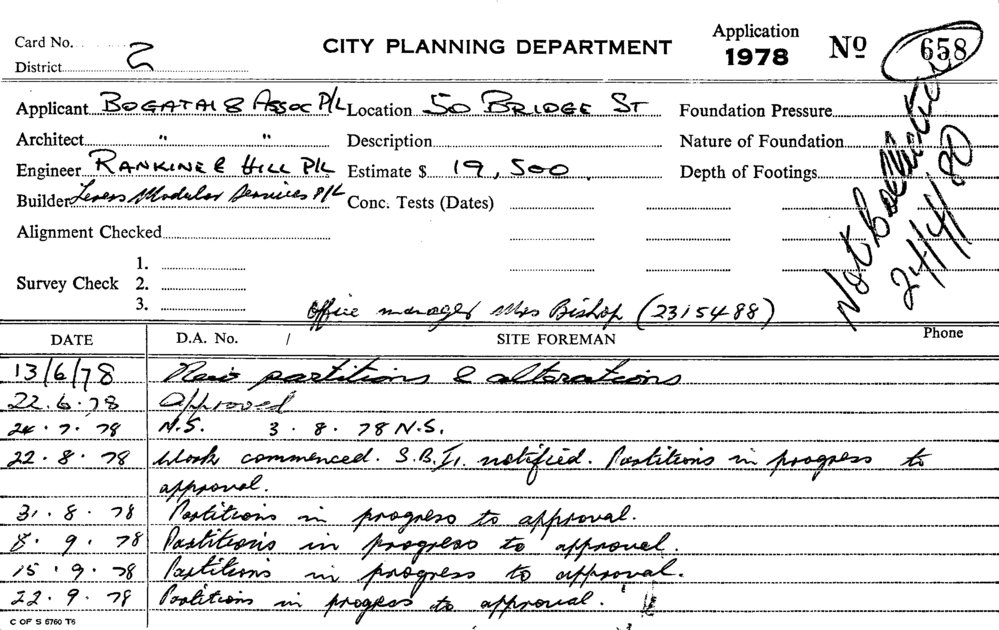 Card No. 2
CITY PLANNING DEPARTMENT
Application
1978 No 658
District
Applicant BOGATAI & ASSOC P/L Location 50 BRIDGE ST Foundation Pressure
Architect " " Description Nature of Foundation
Engineer RANKINE & HILL P/L Estimate $ 19,500. Depth of Footings
Builder Levers Modular Services P/L Conc. Tests (Dates)
Alignment Checked
Survey Check 1.
2.
3.
Not
24/4/80
Office manager Mrs Bishop (2315488)
DATE D.A. No. / SITE FOREMAN Phone
13/6/78 New partitions & alterations
22.6.78 Approved
24.7.78 N.S. 3.8.78 N.S.
22.8.78 Work commenced. S.B.I. notified. Partitions in progress to
approval.
31.8.78 Partitions in progress to approval.
8.9.78 Partitions in progress to approval.
15.9.78 Partitions in progress to approval.
22.9.78 Partitions in progress to approval.
C OF S 5760 T6